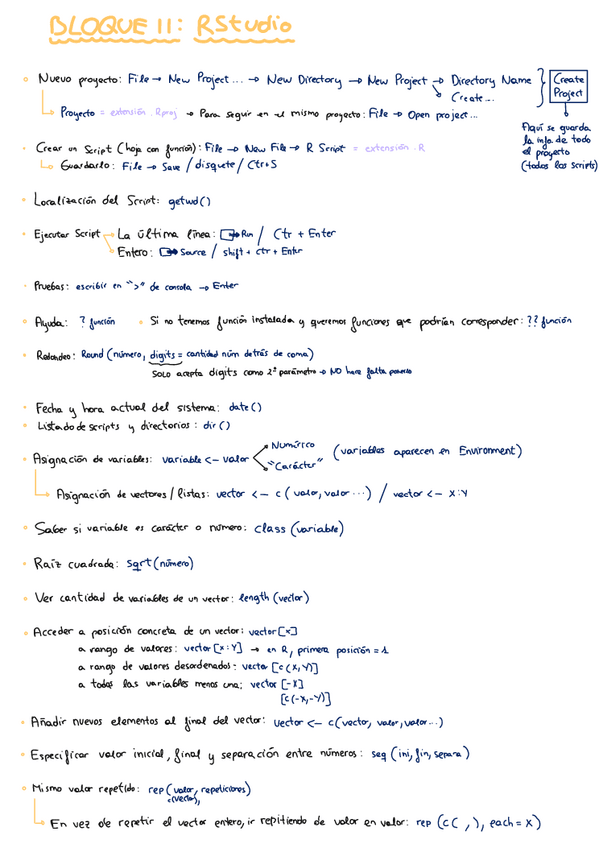 BLOQUE II: RStudio
Nuevo proyecto: File → New Project ... → New Directory → New Project → Directory Name
Create...
Create Project
Proyecto = extensión .Rproj → Para seguir en el mismo proyecto: File → Open project...
Aquí se guarda
la info de todo
el proyecto
(todos los scripts)
Crear un Script (hoja con función): File → New File → R Script = extensión .R
Guardarlo: File → Save / disquete / Ctr+S
Localización del Script: getwd()
Ejecutar Script → La última línea: Run / Ctr + Enter
Entero: Source / shift + ctr + Enter
Pruebas: escribir en ">" de consola → Enter
Ayuda: ? función
Si no tenemos función instalada y queremos funciones que podrían corresponder: ?? función
Redondeo: Round (número, digits = cantidad núm detrás de coma)
Solo acepta digits como 2º parámetro → NO hace falta ponerlo
Fecha y hora actual del sistema: date()
Listado de scripts y directorios: dir()
Asignación de variables: variable <- valor
Numérico
"Carácter"
(variables aparecen en Environment)
Asignación de vectores / listas: vector <- c (valor, valor ...) / vector <- x:y
Saber si variable es carácter o número: class (variable)
Raíz cuadrada: sqrt (número)
Ver cantidad de variables de un vector: length (vector)
Acceder a posición concreta de un vector: vector [x]
a rango de valores: vector [x:y] → en R, primera posición = 1
a rango de valores desordenados: vector [c(x,y)]
a todas las variables menos una: vector [-x]
[c(-x,-y)]
Añadir nuevos elementos al final del vector: vector <- c(vector, valor, valor...)
Especificar valor inicial, final y separación entre números: seq (ini, fin, separa)
Mismo valor repetido: rep (valor, repeticiones)
c(vector),
En vez de repetir el vector entero, ir repitiendo de valor en valor: rep (c( , ), each = x)